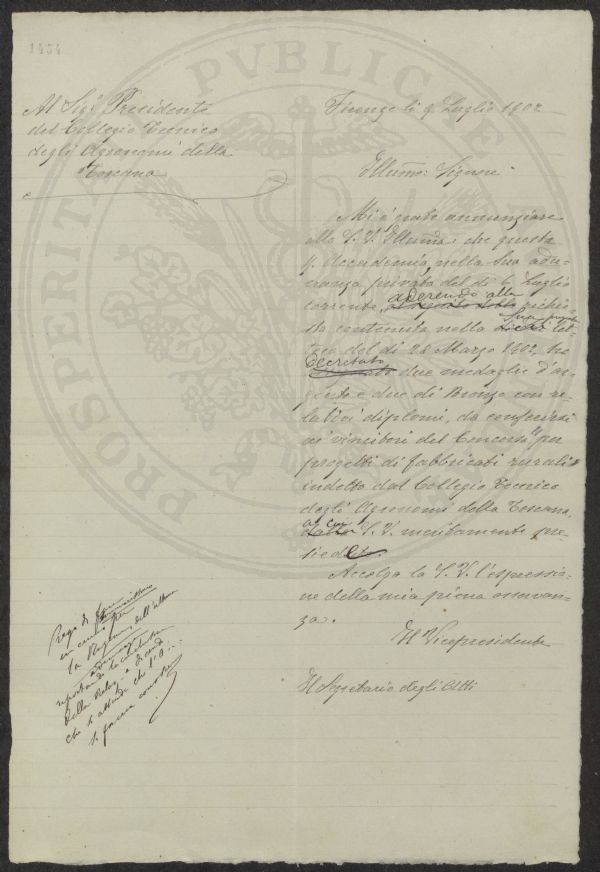 1434
PROSPERITATI PVBLICAE
Al Sigr Presidente
del Collegio Tecnico
degli Agronomi della
Toscana
Firenze li 9 Luglio 1902
Illumo: Signore
Mi è grato annunziare
alla S. V. Illuma: che questa
R. Accademia nella Sua adu-
nanza privata del dì 6 Luglio
corrente, aderendo alla richie-
sta contenuta nella Sua pregiata let-
tera del dì 28 Marzo 1902, ha
decretato due medaglie d'ar-
gento e due di Bronzo con re-
lativi diplomi, da conferirsi
ai vincitori del Concorso "per
progetti di fabbricati rurali"
indetto dal Collegio Tecnico
degli Agronomi della Toscana,
a cui la S. V. meritamente pre-
siede.
Accolga la S. V. l'espressio-
ne della mia piena osservan-
za.
Il Vicepresidente
Il Segretario degli Atti
che si attende che